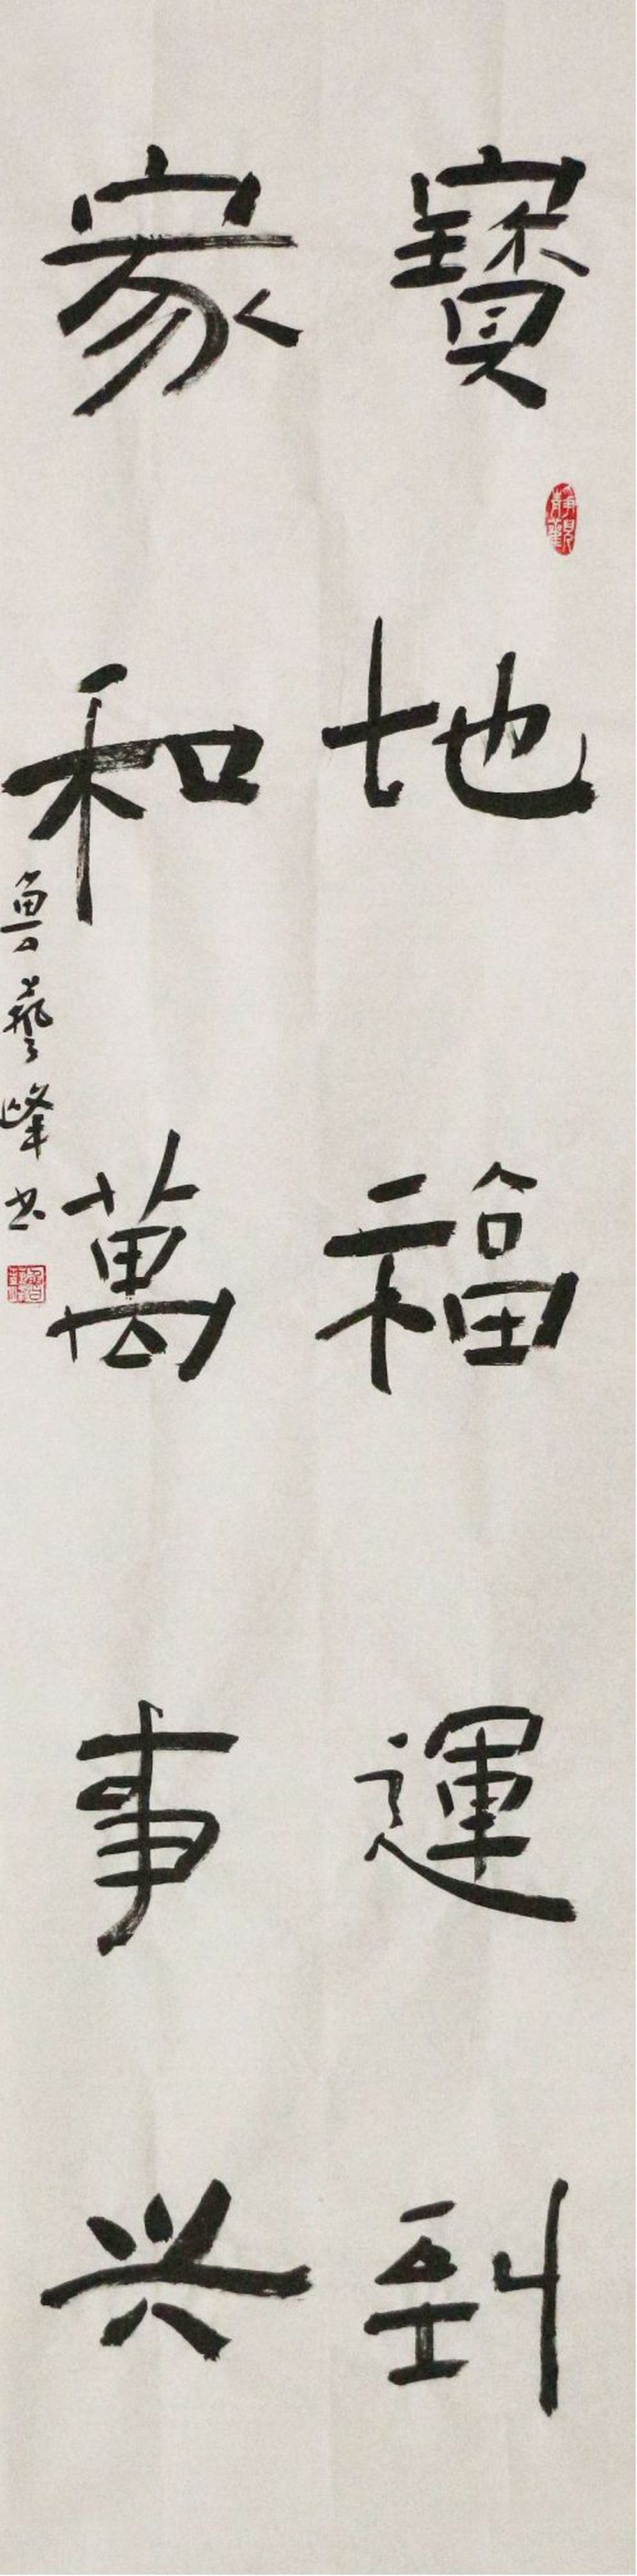 寳地福運到
家和萬事兴
魯藝峰书
静觀